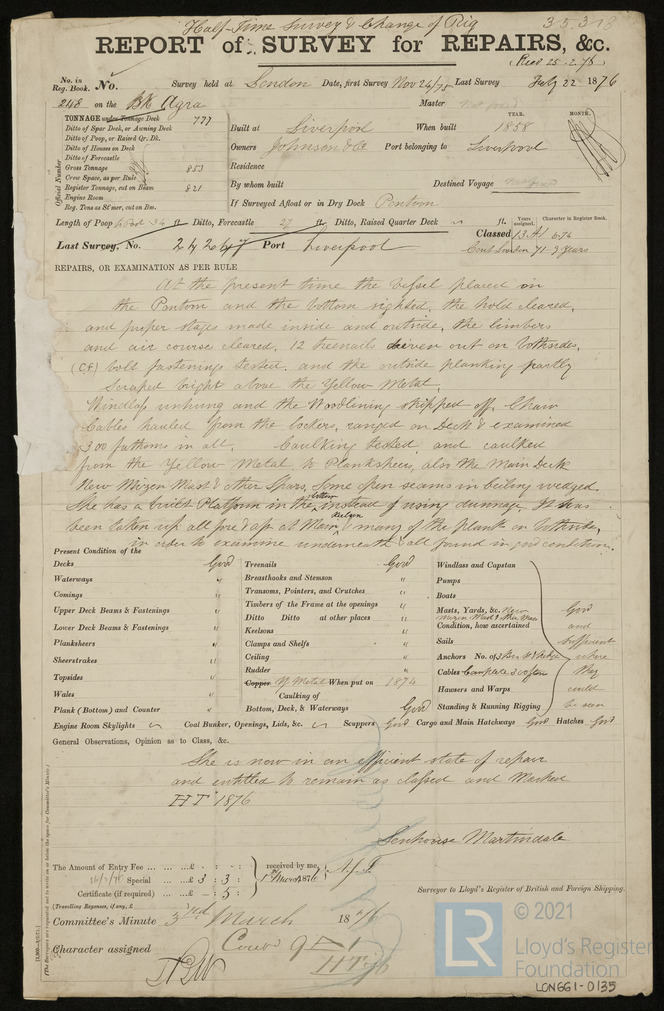 Half-Time Survey & Change of Rig
35318
REPORT of SURVEY for REPAIRS, &c.
(Recd 25.2.76)
No. in Reg. Book. No. Survey held at London Date, first Survey Nov 24/75 Last Survey Feby 22 1876
248 on the Bk Agra Master
TONNAGE under Tonnage Deck 777
Ditto of Spar Deck, or Awning Deck
Ditto of Poop, or Raised Qr. Dk.
Ditto of Houses on Deck
Ditto of Forecastle
Gross Tonnage 853
Crew Space, as per Rule
Register Tonnage, cut on Beam 821
Engine Room
Reg. Tons as St'mer, cut on Bm.
Official Number
YEAR. MONTH.
Built at Liverpool When built 1858
Owners Johnson & Co Port belonging to Liverpool
Residence
By whom built Destined Voyage
If Surveyed Afloat or in Dry Dock Pontoon
Length of Poop 34 ft Ditto, Forecastle 27 ft. Ditto, Raised Quarter Deck ft.
Years assigned. Character in Register Book.
Classed 13 A1 6.74
Last Survey, No. 24264 Port Liverpool
Cont London 71-9 Years
REPAIRS, OR EXAMINATION AS PER RULE
At the present time the Vessel placed on
the Pontoon and the bottom sighted, the hold cleared,
and proper stages made inside and outside, the limbers
and air course cleared. 12 treenails driven out on bothsides,
(CF) bolt fastenings tested. and the outside planking partly
Scraped bright above the Yellow Metal.
Windlass unhung and the Woodlining stripped off, Chain
Cables hauled from the lockers, ranged on Deck & examined
300 fathoms in all. Caulking tested and caulked
from the Yellow Metal to Planksheers, also the Main Deck
New Mizen Mast & other Spars, Some open seams in ceiling wedged.
She has a built Platform in the bottom instead of using dunnage. It has
been taken up all fore & aft at Main Keelson & many of the plank on bothsides,
in order to examine underneath & all found in good condition.
Present Condition of the
Decks Good
Waterways "
Comings "
Upper Deck Beams & Fastenings "
Lower Deck Beams & Fastenings "
Planksheers "
Sheerstrakes "
Topsides "
Wales "
Plank (Bottom) and Counter "
Treenails Good
Breasthooks and Stemson "
Transoms, Pointers, and Crutches "
Timbers of the Frame at the openings "
Ditto Ditto at other places "
Keelsons "
Clamps and Shelfs "
Ceiling "
Rudder "
Copper Y Metal When put on 1874
Caulking of
Bottom, Deck, & Waterways Good
Windlass and Capstan
Pumps
Boats
Masts, Yards, &c. New
Mizen Mast & other Spars
Condition, how ascertained
Sails
Anchors No. of
Cables Complete 300 fms
Hausers and Warps
Standing & Running Rigging
Good
and
Sufficient
where
they
could
be seen
Engine Room Skylights Coal Bunker, Openings, Lids, &c. Scuppers Good Cargo and Main Hatchways Good Hatches Good
General Observations, Opinion as to Class, &c.
She is now in an efficient state of repair
and entitled to remain as classed and Marked
HT 1876
Senhouse Martindale
The Amount of Entry Fee ... ... ... £ - : - : -
Special ... £ 3 : 3 :
Certificate (if required) ... - : 5 :
(Travelling Expenses, if any, £
received by me,
1st March 1876
Surveyor to Lloyd's Register of British and Foreign Shipping.
Committee's Minute 3rd March 1876
Character assigned Contd 9 A1
HT 76
(The Surveyors are requested not to write on or below the space for Committee's Minute.)
LR
© 2021
Lloyd's Register
Foundation
LON661-0135